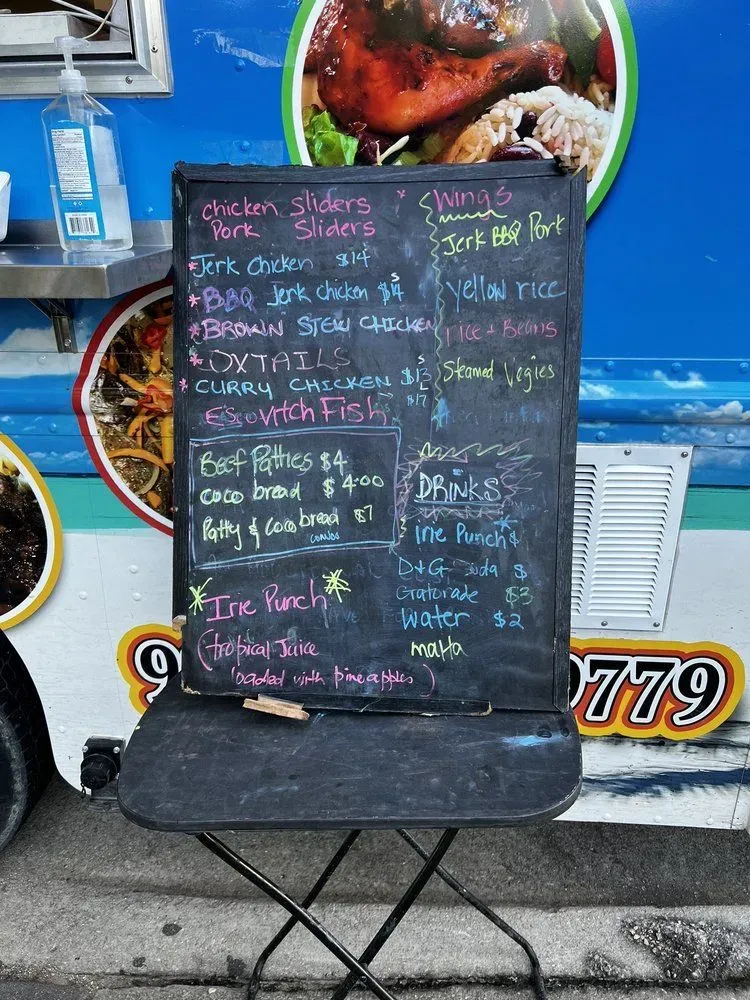 chicken Sliders
Pork Sliders
*Jerk Chicken $14
*BBQ Jerk chicken
*BROWN STEW CHICKEN
*OXTAILS
*CURRY CHICKEN
$17
Escovitch Fish
Beef Patties $4
coco bread $4.00
Patty & Coco bread $7
combo
*Irie Punch*
(tropical Juice
loaded with pineapples)
*Wings
Jerk BBQ Pork
yellow rice
rice + Beans
Steamed Vegies
DRINKS
irie Punch $
D+G Soda $
Gatorade $3
water $2
malta
9
0779